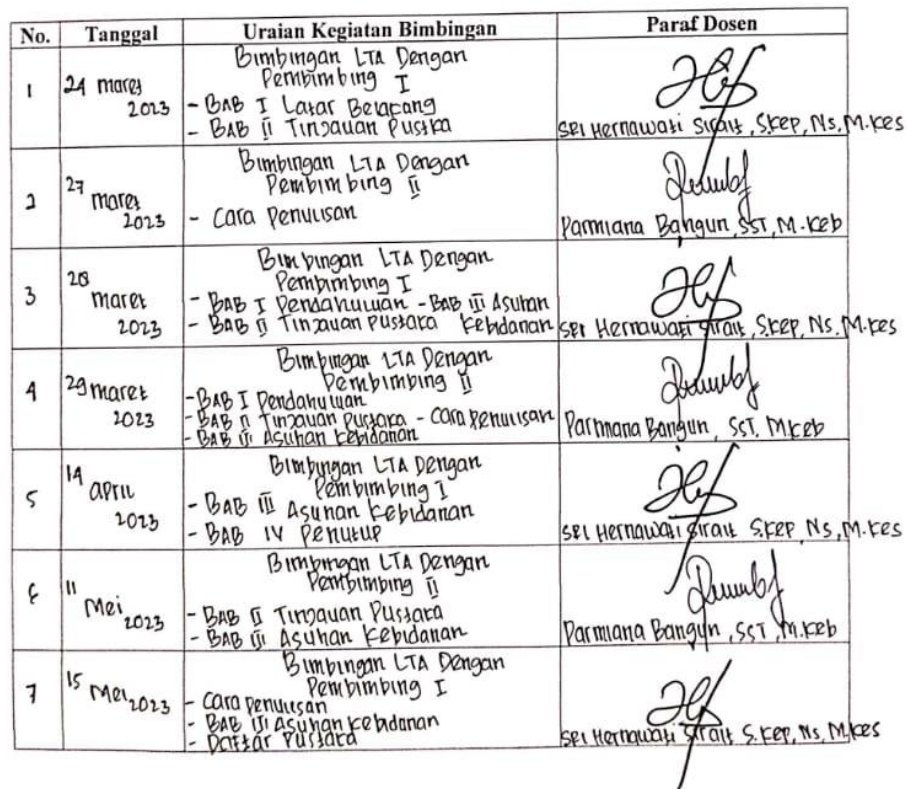 No. Tanggal Uraian Kegiatan Bimbingan Paraf Dosen
1 24 maret 2023
Bimbingan LTA Dengan
Pembimbing I
- BAB I Latar Belakang
- BAB II Tinjauan Pustka
Sri Hernawati Sirait, S.Kep, Ns, M.Kes
2 27 maret 2023
Bimbingan LTA Dengan
Pembimbing II
- Cara Penulisan
Parmiana Bangun, SST, M.Keb
3 28 maret 2023
Bimbingan LTA Dengan
Pembimbing I
- BAB I Pendahuluan - BAB III Asuhan
- BAB II Tinjauan Pustaka Kebidanan
Sri Hernawati Sirait, S.Kep, Ns. M.Kes
4 29 maret 2023
Bimbingan LTA Dengan
Pembimbing II
- BAB I Pendahuluan
- BAB II Tinjauan Pustaka - Cara Penulisan
- BAB III Asuhan Kebidanan
Parmiana Bangun, SST, M.Keb
5 14 april 2023
Bimbingan LTA Dengan
Pembimbing I
- BAB III Asuhan Kebidanan
- BAB IV Penutup
Sri Hernawati Sirait S.Kep, Ns, M.Kes
6 11 Mei 2023
Bimbingan LTA Dengan
Pembimbing II
- BAB II Tinjauan Pustaka
- BAB III Asuhan Kebidanan
Parmiana Bangun, SST, M.Keb
7 15 Mei 2023
Bimbingan LTA Dengan
Pembimbing I
- Cara penulisan
- BAB III Asuhan Kebidanan
- Daftar Pustaka
Sri Hernawati Sirait S.Kep, Ns, M.Kes